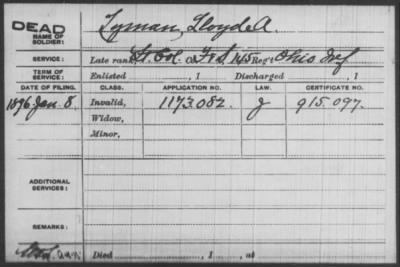 DEAD
NAME OF SOLDIER: Lyman, Lloyd A.
SERVICE: Late rank, Lt. Col. Co. F & S, 145 Reg't Ohio Inf
TERM OF SERVICE: Enlisted , 1 Discharged , 1
DATE OF FILING. CLASS. APPLICATION NO. LAW. CERTIFICATE NO.
1896 Jan. 8. Invalid, 1173.082. J 915.097.
Widow,
Minor,
ADDITIONAL SERVICES:
REMARKS:
Died , 1 , at